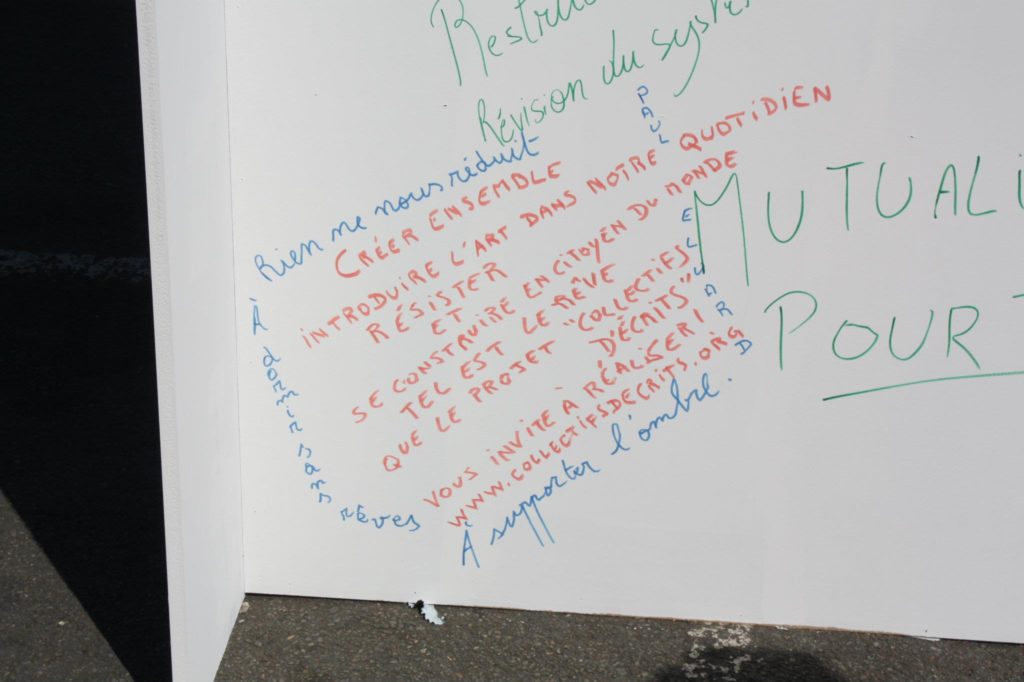 Révision du
Rien ne nous réduit
À dormir sans rêves
À supporter l'ombre.
PAUL ELUARD
CRÉER ENSEMBLE
INTRODUIRE L'ART DANS NOTRE QUOTIDIEN
RÉSISTER
ET
SE CONSTRUIRE EN CITOYEN DU MONDE
TEL EST LE RÊVE
QUE LE PROJET "COLLECTIFS
D'ÉCRITS"
VOUS INVITE À RÉALISER !
WWW.COLLECTIFSDECRITS.ORG
MUTUALI
POUR